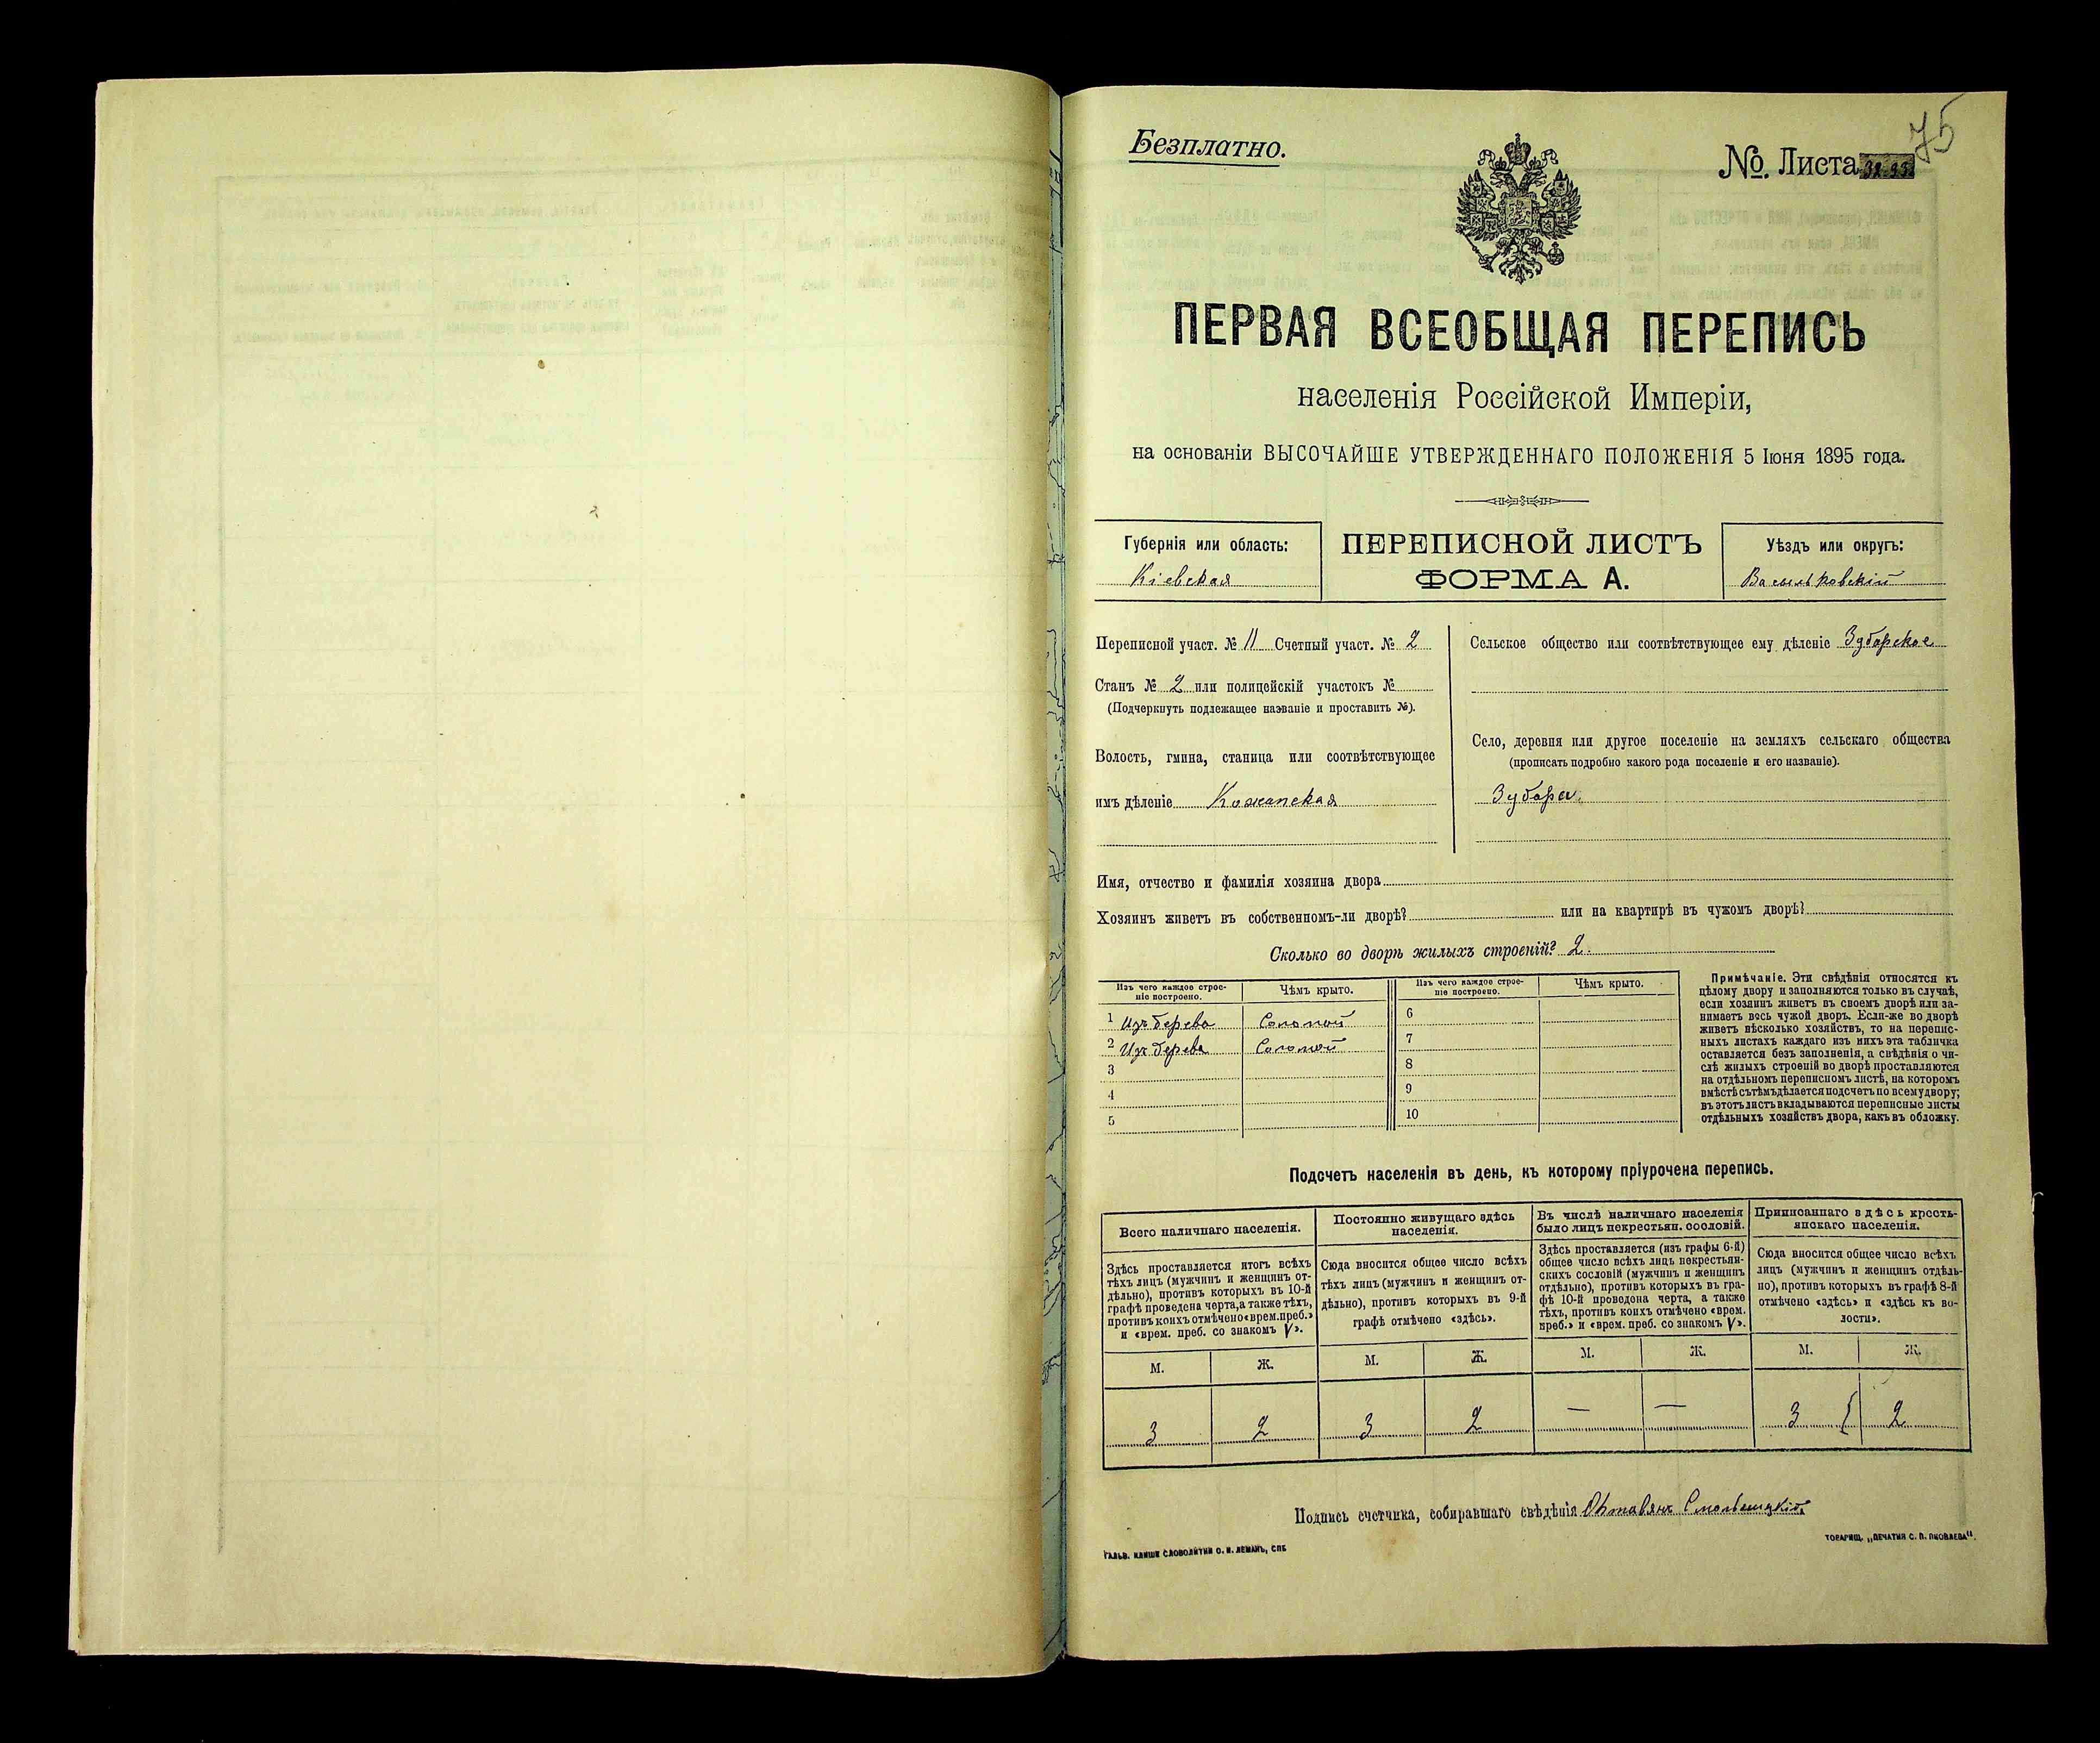 75
Безплатно.
№. Листа
ПЕРВАЯ ВСЕОБЩАЯ ПЕРЕПИСЬ
населенія Россійской Имперіи,
на основаніи ВЫСОЧАЙШЕ УТВЕРЖДЕННАГО ПОЛОЖЕНІЯ 5 Іюня 1895 года.
Губернія или область:
Кіевская
ПЕРЕПИСНОЙ ЛИСТЪ
ФОРМА А.
Уѣздъ или округъ:
Васильковскій
Переписной участ. № 11 Счетный участ. № 2
Станъ № 2 или полицейскій участокъ №
(Подчеркнуть подлежащее названіе и проставить №).
Волость, гмина, станица или соотвѣтствующее
имъ дѣленіе Кожанская
Сельское общество или соотвѣтствующее ему дѣленіе Зубарское
Село, деревня или другое поселеніе на земляхъ сельскаго общества
(прописать подробно какого рода поселеніе и его названіе).
Зубари
Имя, отчество и фамилія хозяина двора
Хозяинъ живетъ въ собственномъ-ли дворѣ? или на квартирѣ въ чужомъ дворѣ?
Сколько во дворѣ жилыхъ строеній? 2.
Изъ чего каждое строе-
ніе построено.
Чѣмъ крыто.
Изъ чего каждое строе-
ніе построено.
Чѣмъ крыто.
1 Изъ дерева Соломой
2 Изъ дерева Соломой
3
4
5
6
7
8
9
10
Примѣчаніе. Эти свѣдѣнія относятся къ
цѣлому двору и заполняются только въ случаѣ,
если хозяинъ живетъ въ своемъ дворѣ или за-
нимаетъ весь чужой дворъ. Если-же во дворѣ
живетъ нѣсколько хозяйствъ, то на перепис-
ныхъ листахъ каждаго изъ нихъ эта табличка
оставляется безъ заполненія, а свѣдѣнія о чи-
слѣ жилыхъ строеній во дворѣ проставляются
на отдѣльномъ переписномъ листѣ, на которомъ
вмѣстѣ съ тѣмъ дѣлается подсчетъ по всему двору;
въ этотъ листъ вкладываются переписные листы
отдѣльныхъ хозяйствъ двора, какъ въ обложку.
Подсчетъ населенія въ день, къ которому пріурочена перепись.
Всего наличнаго населенія.
Здѣсь проставляется итогъ всѣхъ
тѣхъ лицъ (мужчинъ и женщинъ от-
дѣльно), противъ которыхъ въ 10-й
графѣ проведена черта, а также тѣхъ,
противъ коихъ отмѣчено «врем. преб.»
и «врем. преб. со знакомъ V».
Постоянно живущаго здѣсь
населенія.
Сюда вносится общее число всѣхъ
тѣхъ лицъ (мужчинъ и женщинъ от-
дѣльно), противъ которыхъ въ 9-й
графѣ отмѣчено «здѣсь».
Въ числѣ наличнаго населенія
было лицъ некрестьян. сословій.
Здѣсь проставляется (изъ графы 6-й)
общее число всѣхъ лицъ некрестьян-
скихъ сословій (мужчинъ и женщинъ
отдѣльно), противъ которыхъ въ гра-
фѣ 10-й проведена черта, а также
тѣхъ, противъ коихъ отмѣчено «врем.
преб.» и «врем. преб. со знакомъ V».
Приписаннаго здѣсь кресть-
янскаго населенія.
Сюда вносится общее число всѣхъ
лицъ (мужчинъ и женщинъ отдѣль-
но), противъ которыхъ въ графѣ 8-й
отмѣчено «здѣсь» и «здѣсь къ во-
лости».
М. Ж. М. Ж. М. Ж. М. Ж.
3 2 3 2 — — 3 2
Подпись счетчика, собиравшаго свѣдѣнія Октавянъ
ГАЛЬВ. КЛИШЕ СЛОВОЛИТНИ О. И. ЛЕМАНЪ, СПБ
ТОВАРИЩ. „ПЕЧАТНЯ С. П. ЯКОВЛЕВА“.